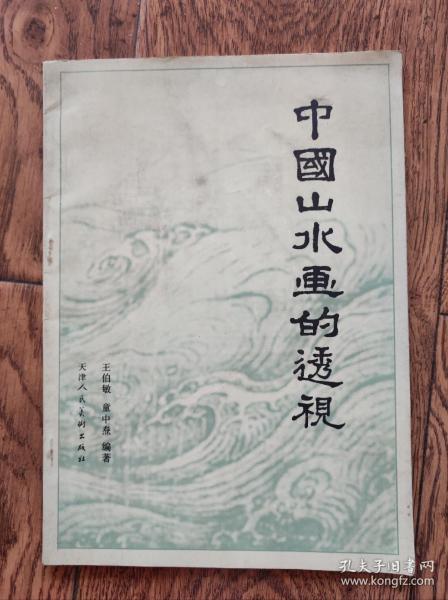 中國山水画的透視
王伯敏 童中焘 编著
天津人民美術出版社
孔夫子旧书网
www.kongfz.com